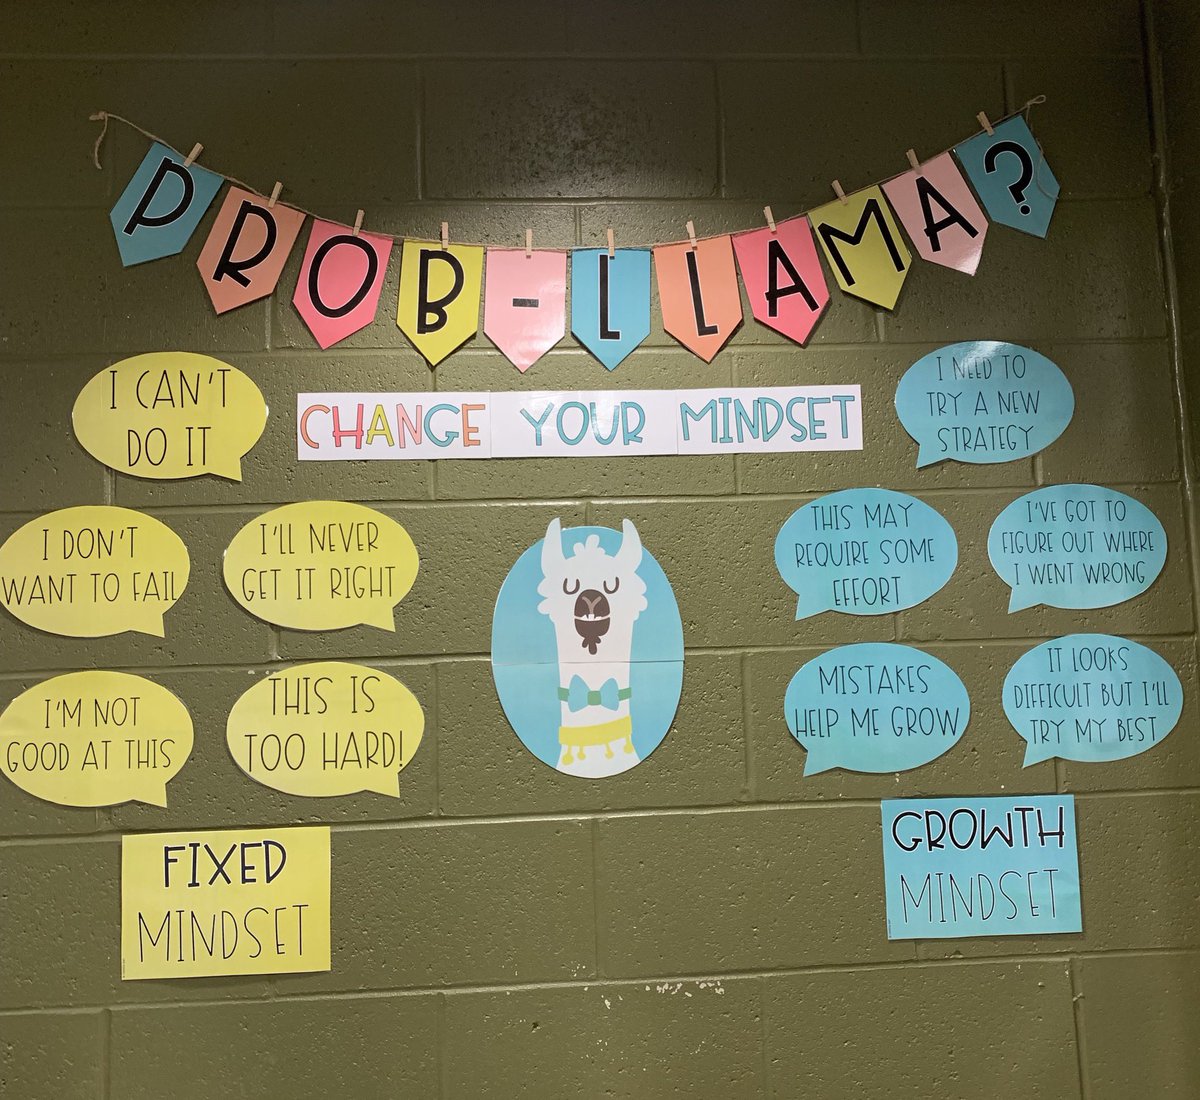 PROB-LLAMA?
CHANGE YOUR MINDSET
I CAN'T
DO IT
I DON'T
WANT TO FAIL
I'LL NEVER
GET IT RIGHT
I'M NOT
GOOD AT THIS
THIS IS
TOO HARD!
FIXED
MINDSET
I NEED TO
TRY A NEW
STRATEGY
THIS MAY
REQUIRE SOME
EFFORT
I'VE GOT TO
FIGURE OUT WHERE
I WENT WRONG
MISTAKES
HELP ME GROW
IT LOOKS
DIFFICULT BUT I'LL
TRY MY BEST
GROWTH
MINDSET